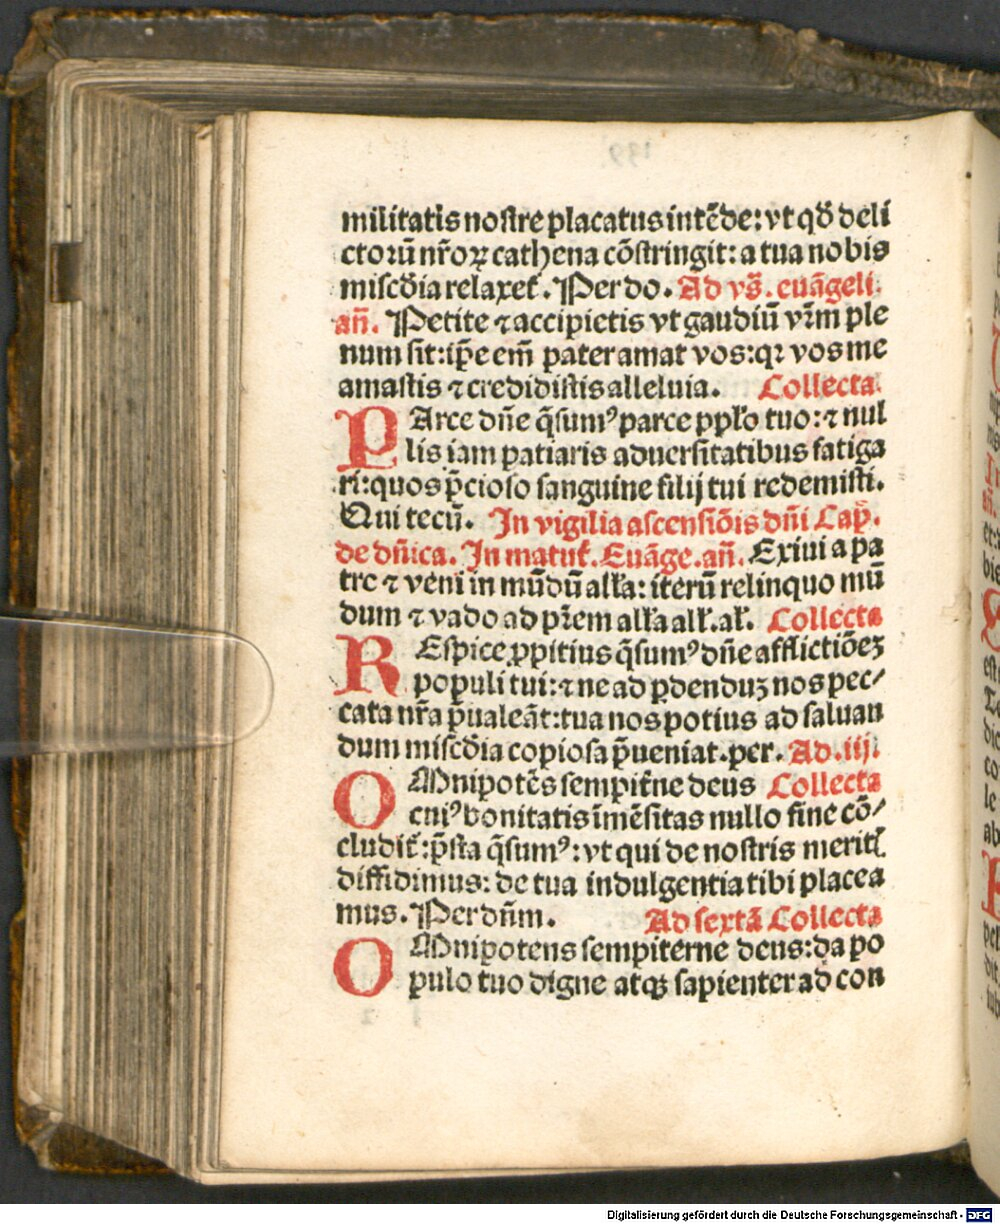 militatis nostre placatus intēde: vt qđ deli
ctoꝛū nr̄oꝝ cathena cōstringit: a tua nobis
misc̄dia relaxet̄. Per do. Ad vs̄. euāgeli.
an̄. Petite ⁊ accipietis vt gaudiū vr̄m ple
num sit: ip̄e em̄ pater amat vos: qꝛ vos me
amastis ⁊ credidistis alleluia. Collecta.
PArce dn̄e q̄sumꝰ parce pplo tuo: ⁊ nul
lis iam patiaris aduersitatibus fatiga
ri: quos p̄cioso sanguine filij tui redemisti.
Qui tecū. In vigilia ascensiōis dn̄i Cap̄.
de dn̄ica. In matut̄. Euāge. an̄. Exiui a pa
tre ⁊ veni in mūdū alła: iterū relinquo mū
dum ⁊ vado ad pr̄em alła ałł. ał. Collecta
REspice ꝓpitius q̄sumꝰ dn̄e afflictiōeꝫ
populi tui: ⁊ ne ad ꝑdenduꝫ nos pec⸗
cata nr̄a p̄ualeāt: tua nos potius ad saluan
dum misc̄dia copiosa p̄ueniat. per. Ad .iij.
OMnipotēs sempit̄ne deus Collecta
cuiꝰ bonitatis īmēsitas nullo fine cō⸗
cludit̄: p̄sta q̄sumꝰ: vt qui de nostris meritꝭ
diffidimus: de tua indulgentia tibi placea
mus. Per dn̄m. Ad sextā Collecta
OMnipotens sempiterne deus: da po
pulo tuo digne atqꝫ sapienter ad con
Digitalisierung gefördert durch die Deutsche Forschungsgemeinschaft - DFG